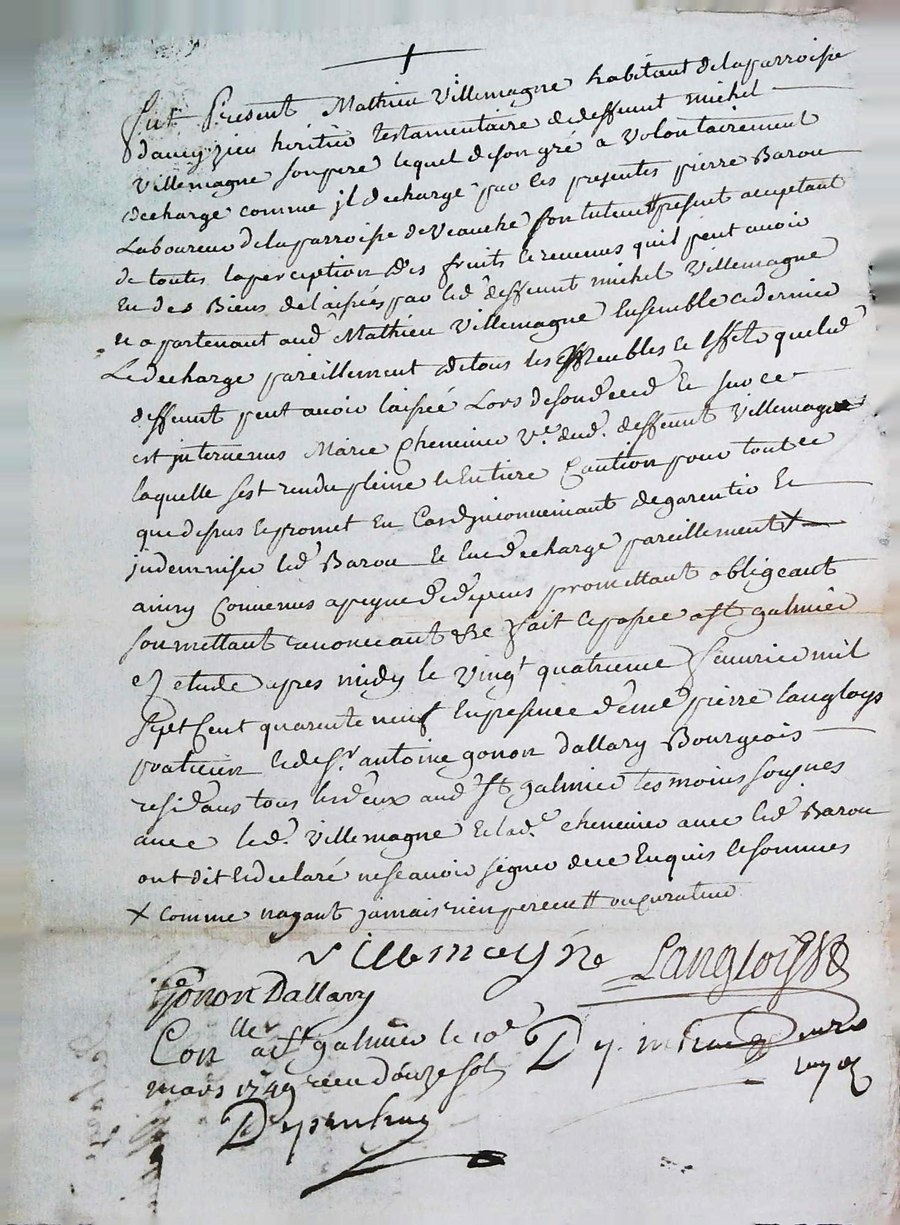 fut Present Mathieu Villemagne habitant de la parroisse
dauezieu heritier testamentaire de deffeunt michel
Villemagne son pere lequel de son gré a volontairement
decharge comme jl decharge par ces presentes pierre Barou
Laboureur de la parroisse de Veauche son tuteur # present acceptant
de toutes la perception des fruits & revenus quil peut avoir
eu des Biens delaissés par led deffeunt michel Villemagne
et apartenant aud Mathieu Villemagne Ensemble ce dernier
Le decharge pareillement de tous les meubles & effets que led
deffeunt peut avoir laissé Lors de son deced Et sur ce
est jntervenus Marie Chemier Ve dud. deffeunt Villemagne
laquelle sest rendu pleine & entiere Caution pour tout ce
que dessus & promet En garentir Et
jndemniser led Barou & len decharge pareillement X
ainsy Convenus a peyne promettant obligeant
soumettant renonceant &c fait & passé a st galmier
etude apres midy le vingt quatrieme feuvrier mil
sept Cent quarente neuf En presence de me pierre Langloys
praticien & de sr. antoine gonon dallary Bourgeois
residans tous les deux aud st galmier tesmoins soignes
avec led. Villemagne & lad. chemier avec led Barou
ont dit & declaré ne scavoir signer de ce Enquis & sommes
X comme nayant jamais rien perceu # ou curateur
villemagne Langlois
Gonon Dallary
Conlle a st galmier le 10e
mars 1749 receu douze sols